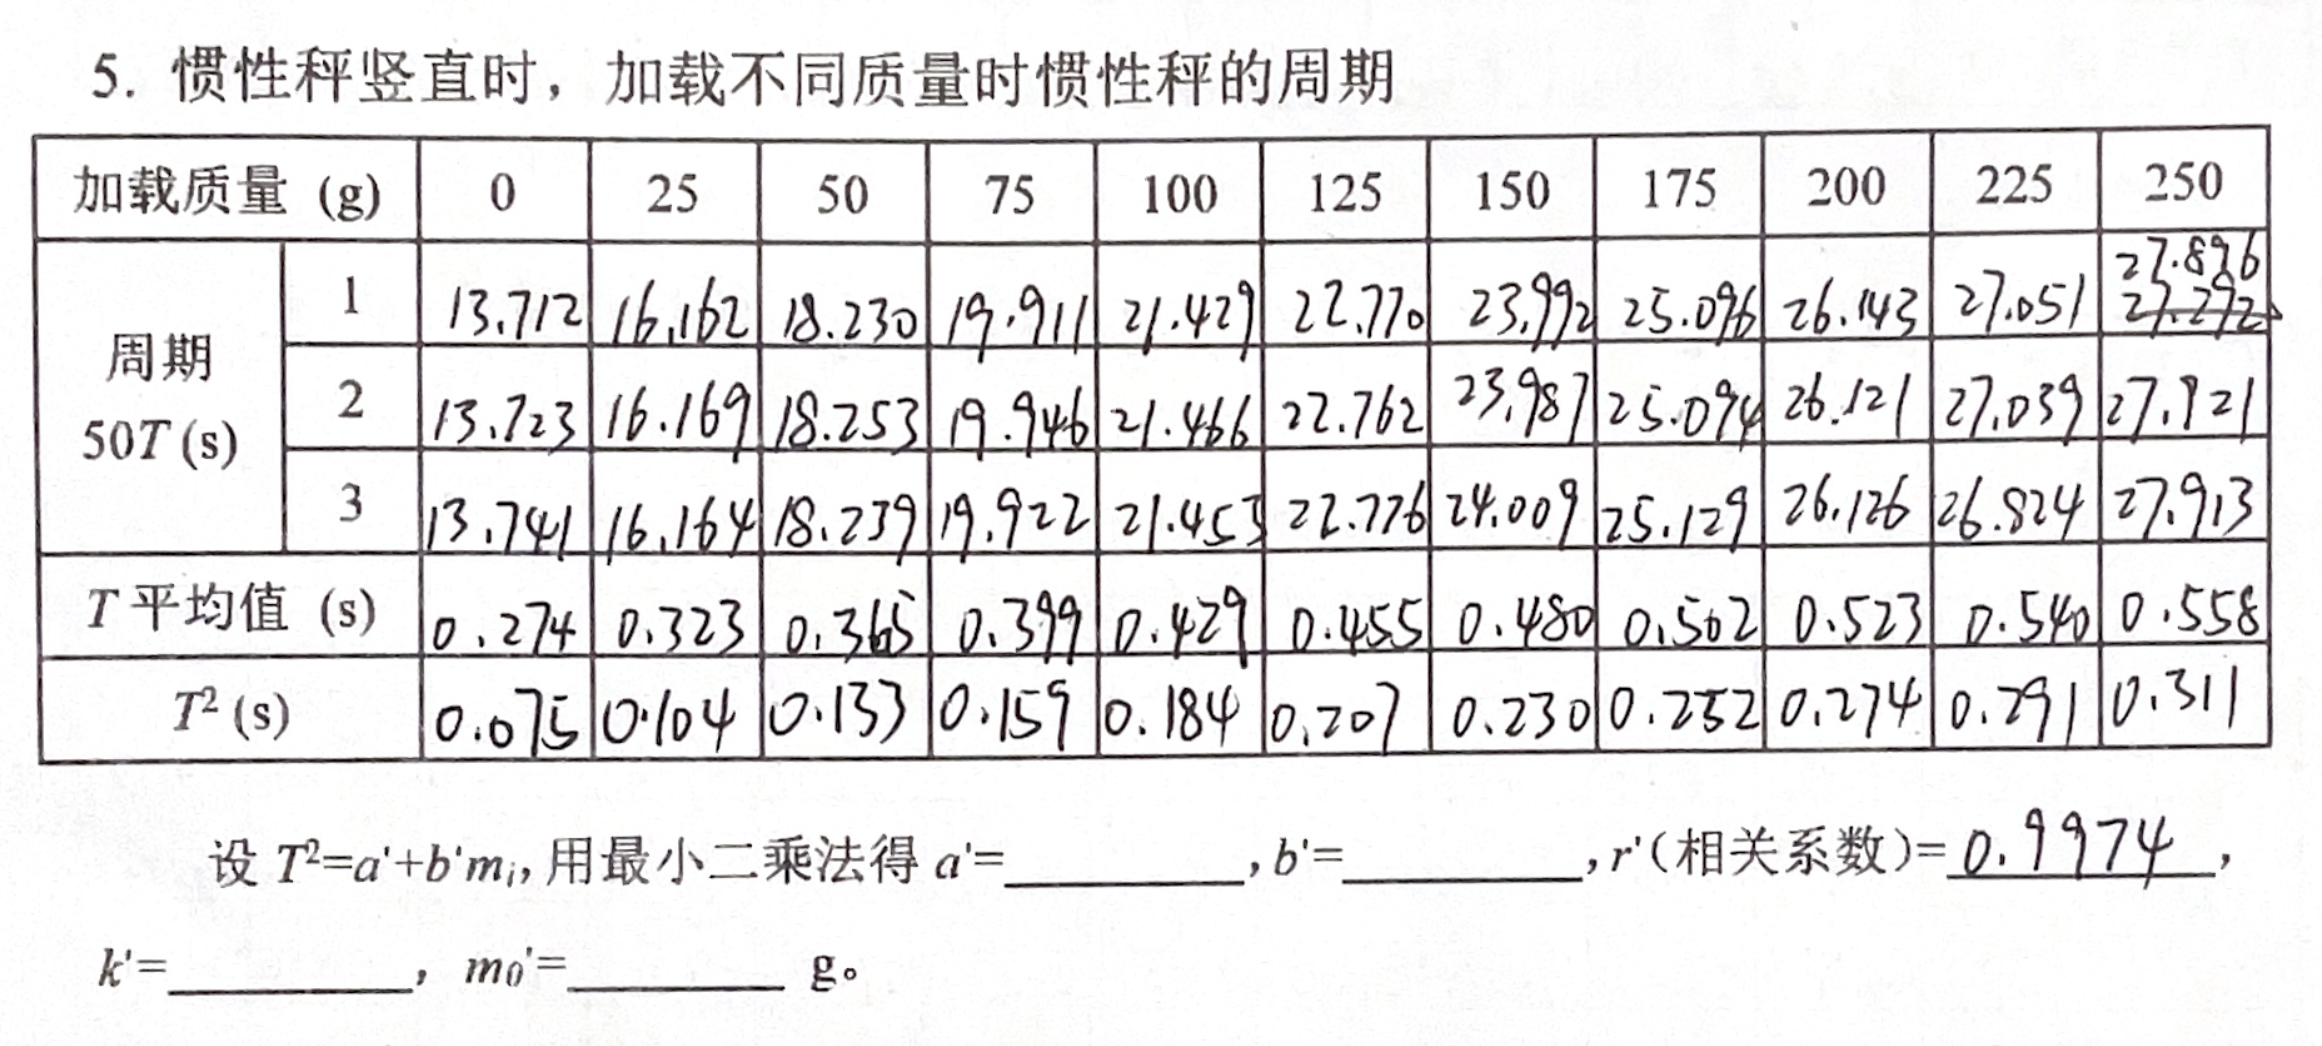 5. 惯性秤竖直时，加载不同质量时惯性秤的周期
加载质量 (g) 0 25 50 75 100 125 150 175 200 225 250
周期 50T (s) 1 13.712 16.162 18.230 19.911 21.429 22.770 23.992 25.096 26.143 27.051 27.896 27.292
2 13.723 16.169 18.253 19.946 21.466 22.762 23.987 25.094 26.121 27.039 27.921
3 13.741 16.164 18.239 19.922 21.453 22.776 24.009 25.129 26.126 26.824 27.913
T 平均值 (s) 0.274 0.323 0.365 0.399 0.429 0.455 0.480 0.502 0.523 0.540 0.558
T² (s) 0.075 0.104 0.133 0.159 0.184 0.207 0.230 0.252 0.274 0.291 0.311
设 T²=a'+b'mᵢ, 用最小二乘法得 a'=________, b'=________, r'(相关系数)=0.9974，
k'=________，m₀'=________ g。